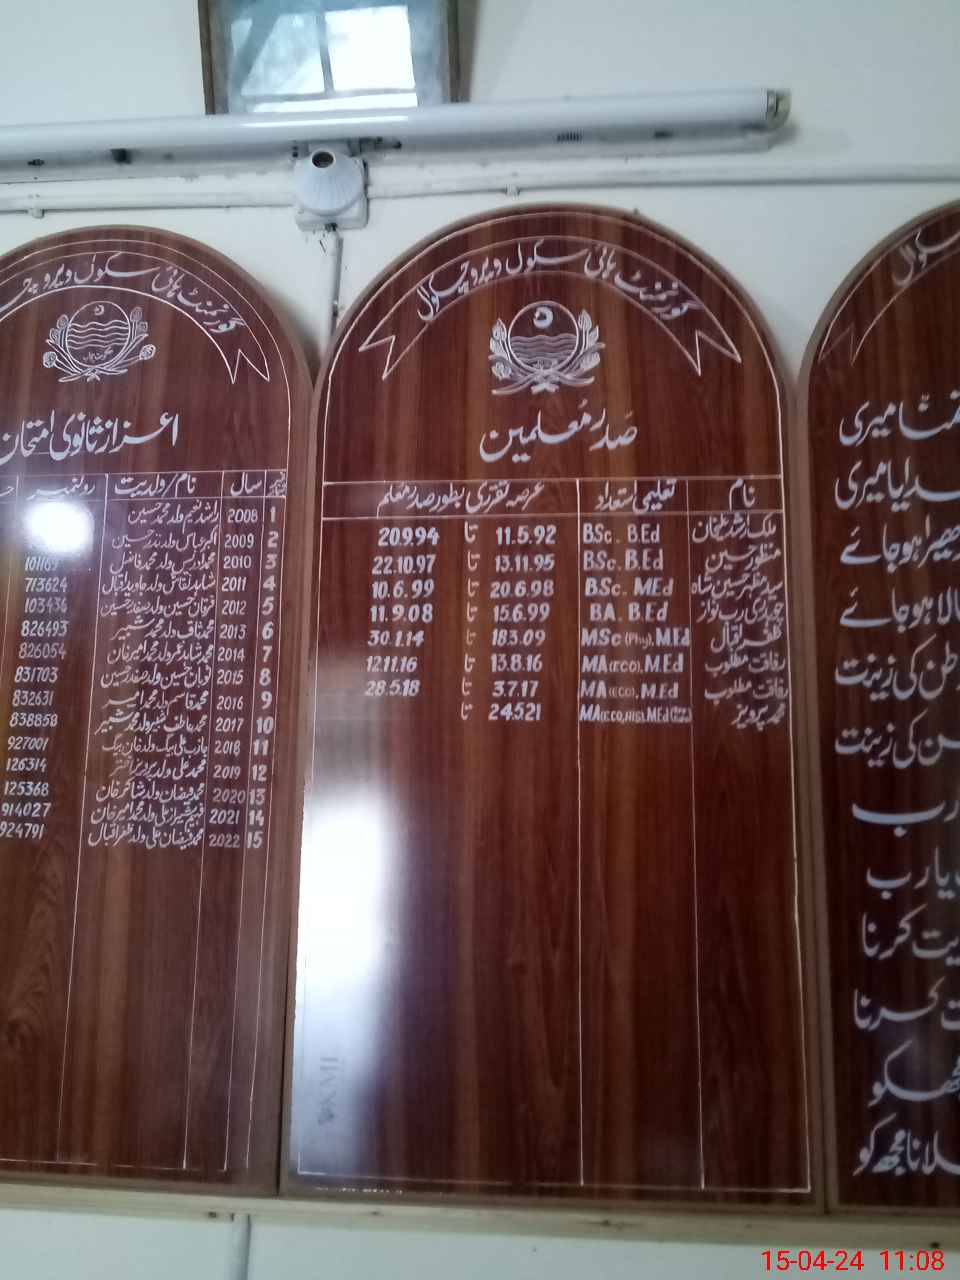 گورنمنٹ ہائی سکول ویرو چکوال
صدر معلمین
نام تعلیمی استعداد عرصہ تقرری بطور صدر معلم
ملک ارشد علی خان BSc. B.Ed 11.5.92 تا 20.9.94
منظور حسین BSc. B.Ed 13.11.95 تا 22.10.97
سید مظہر حسین شاہ BSc. MEd 20.6.98 تا 10.6.99
چوہدری رب نواز BA. B.Ed 15.6.99 تا 11.9.08
ظفر اقبال MSc (Phy), M.Ed 18.3.09 تا 30.1.14
رفاقت مطلوب MA (ECO), M.Ed 13.8.16 تا 12.11.16
رفاقت مطلوب MA (ECO), M.Ed 3.7.17 تا 28.5.18
محمد پرویز MA (ECO, HIS), M.Ed 24.5.21 تا
گورنمنٹ ہائی سکول ویرو
اعزاز ثانوی امتحان
نمبر سال نام/ولدیت رولنمبر
1 2008 راشد نعیم ولد محمد حسین
2 2009 اکبر عباس ولد نذر حسین
3 2010 محمد ادریس ولد محمد فاضل 101169
4 2011 شاہد نقاش ولد جاوید اقبال 713624
5 2012 فرحان حسین ولد صفدر حسین 103436
6 2013 محمد ثاقب ولد محمد شبیر 826493
7 2014 محمد شاہد عمر ولد محمد امیر خان 826054
8 2015 ثوبان حسین ولد صفدر حسین 831703
9 2016 محمد قاسم ولد محمد امیر 832631
10 2017 محمد عاطف شبیر ولد محمد شبیر 838858
11 2018 جاذب علی بیگ ولد خان بیگ 927001
12 2019 محمد علی ولد پرویز اختر 126314
13 2020 محمد فیضان ولد شاکر خان 125368
14 2021 فہیم شیراز علی ولد محمد امیر خان 914027
15 2022 محمد فیضان علی ولد ظفر اقبال 924791
سکول
تمنا میری
خدایا میری
اندھیرا ہو جائے
اجالا ہو جائے
وطن کی زینت
چمن کی زینت
یا رب
یا رب
حمایت کرنا
محبت کرنا
مجھ کو
چلانا مجھ کو
KMI
15-04-24 11:08